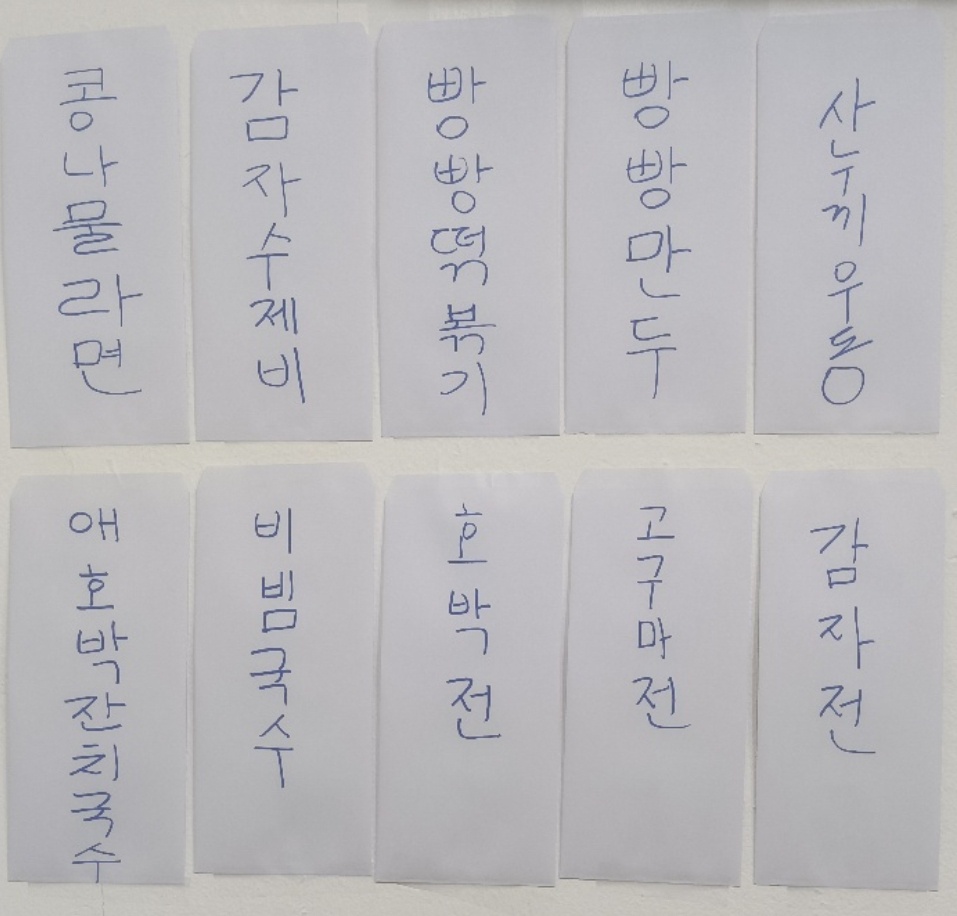 콩나물라면
감자수제비
빵빵떡볶기
빵빵만두
산누끼우동
애호박잔치국수
비빔국수
호박전
고구마전
감자전